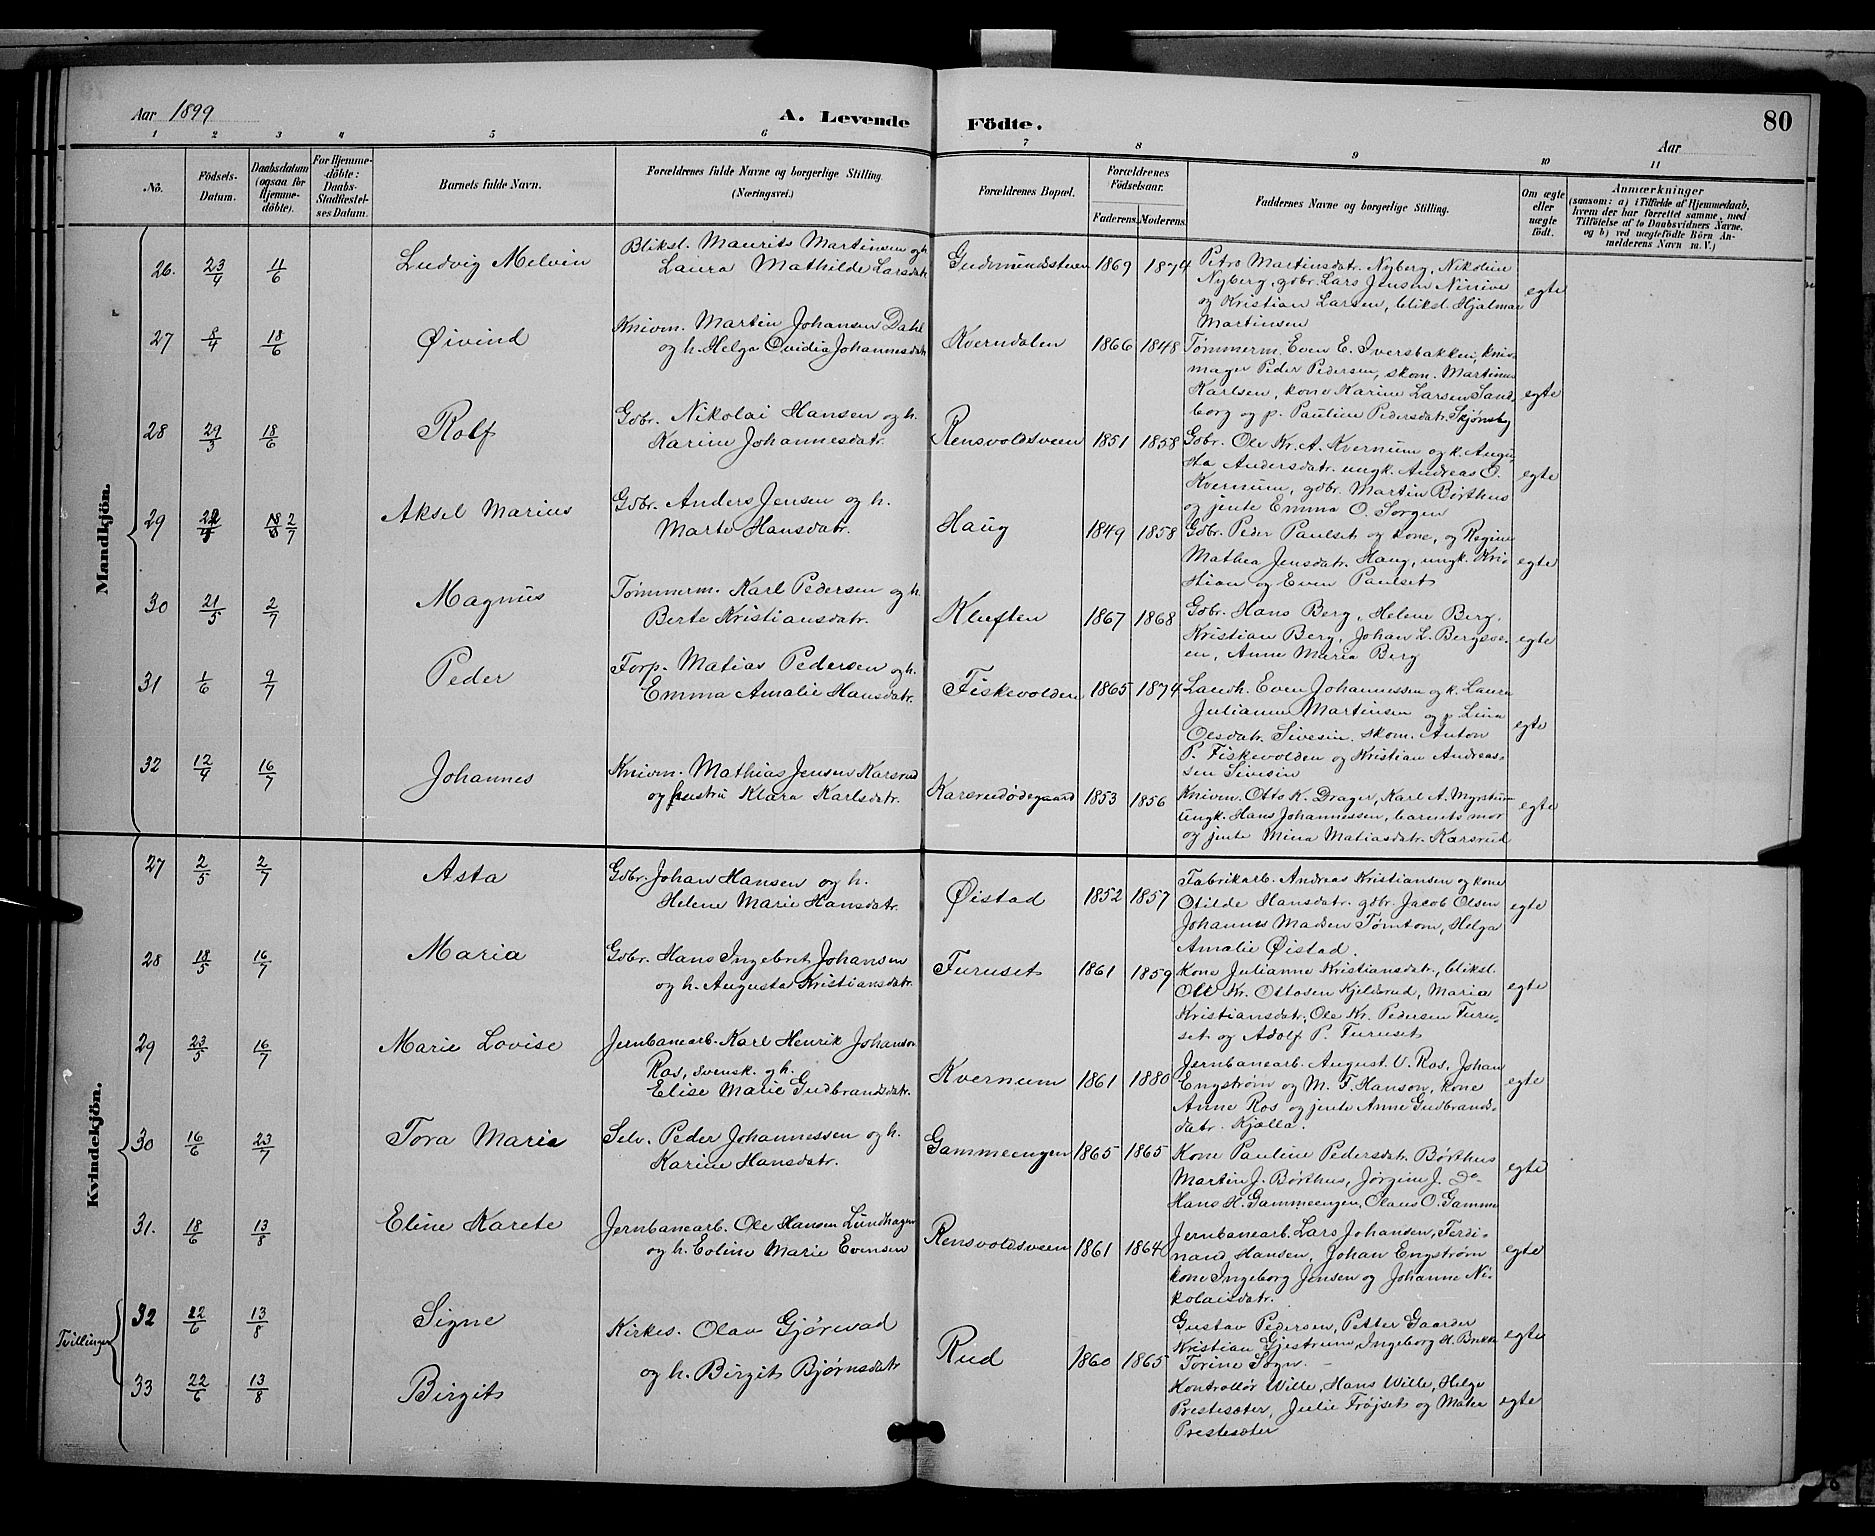 Aar 1899
A. Levende Födte.
Aar
80
1 2 3 4 5 6 7 8 9 10 11
No.
Födsels-Datum.
Daabsdatum (ogsaa for Hjemmedöbte).
For Hjemmedöbte: Daabs-Stadfæstelses Datum.
Barnets fulde Navn.
Forældrenes fulde Navne og borgerlige Stilling (Næringsvei.)
Forældrenes Bopæl.
Forældrenes Födselsaar.
Faderens. Moderens.
Faddernes Navne og borgerlige Stilling.
Om ægte eller uægte födt.
Anmærkninger
(saasom: a) i Tilfælde af Hjemmedaab, hvem der har forrettet samme, med Tilföielse af to Daabsvidners Navne. og b) ved uægtefödte Börn Anmelderens Navn m. V.)
Mandkjön.
26. 23/4 11/6 Ludvig Melvin
Bliksl. Maurits Martinsen og h.
Laura Mathilde Larsdatr.
Gudmundsteen 1869 1874
Petra Martinsdatr. Nyberg, Nikoline
Nyberg, gdbr. Lars Jensen Ninive
og Kristian Larsen, bliksl. Hjalmar
Martinsen
egte
27 8/4 18/6 Øivind
Knivm. Martin Johansen Dahl
og h. Helga Ovidia Johannesdatr.
Kverndalen 1866 1848
Tømmerm. Even E. Iversbakken, kniv-
mager Peder Pedersen, skom. Martinus
Karlsen, kone Karine Larsen Sand-
borg og p. Pauline Pedersdatr. Skjønsby
egte
28 29/3 18/6 Rolf
Gdbr. Nikolai Hansen og h.
Karine Johannesdatr.
Rensvoldsveen 1851 1858
Gdbr. Ole Kr. A. Kvernum og k. Augu-
sta Andersdatr. ungk. Andreas O.
Kvernum, gdbr. Martin Børthus
og jente Emma O. Sorgen
egte
29 2/7 Aksel Marius
Gdbr. Anders Jensen og h.
Marte Hansdatr.
Haug 1849 1858
Gdbr. Peder Paulset og kone, og Regine
Mathea Jensdatr. Haug, ungk. Kri-
stian og Even Paulset
egte
30 21/5 2/7 Magnus
Tømmerm. Karl Pedersen og h.
Berte Kristiansdatr.
Kluften 1867 1868
Gdbr. Hans Berg, Helene Berg,
Kristian Berg, Johan L. Bergsve-
en, Anne Maria Berg
egte
31 1/6 9/7 Peder
Forp. Matias Pedersen og h.
Emma Amalie Hansdatr.
Fiskevolden 1865 1874
Landh. Even Johannessen og k. Laura
Julianne Martinsen og p. Lina
Olsdatr. Sivesin. skom. Anton
P. Fiskevolden og Kristian Andreas-
sen Sivesin
egte
32 12/4 16/7 Johannes
Knivm. Mathias Jensen Karsrud
og hustru Klara Karlsdatr.
Karsrudødegaard 1853 1856
Knivm. Otto K. Drager, Karl A. Myrstu-
ungk. Hans Johannessen, barnets mor
og jente Mina Matiasdatr. Karsrud
egte
Kvindekjön.
27 2/5 2/7 Asta
Gdbr. Johan Hansen og h.
Helene Marie Hansdatr.
Øistad 1852 1857
Fabrikarb. Andreas Kristiansen og kone
Otilde Hansdatr. gdbr. Jacob Olsen
Johannes Madsen Tømtom, Helga
Amalie Øistad.
egte
28 18/5 16/7 Maria
Gdbr. Hans Ingebret Johansen
og h. Augusta Kristiansdatr.
Furuset 1861 1859
Kone Julianne Kristiansdatr., bliksl.
Ole Kr. Ottosen Kjeldsrud, Maria
Kristiansdatr, Ole Kr. Pedersen Furu-
set og Adolf P. Furuset
egte
29 23/5 16/7 Marie Lovise
Jernbanearb. Karl Henrik Johanson
Ros, svensk. og h.
Elise Marie Gudbrandsdatr.
Kvernum 1861 1880
Jernbanearb. August V. Ros, Johan
Engstrøm og M. F. Hanson, kone
Anne Ros og jente Anne Gudbrands-
datr. Kjølla.
egte
30 16/6 23/7 Tora Marie
Selv. Peder Johannessen og h.
Karine Hansdatr.
Gammeengen 1865 1865
Kone Pauline Pedersdatr Børthus
Martin J. Børthus, Jørgine J. Do
Hans H. Gammeengen, Olaus O. Gamme
egte
31. 18/6 13/8 Eline Karete
Jernbanearb. Ole Hansen Lundhagen
og h. Eoline Marie Evensen
Rensvoldsveen 1861 1864
Jernbanearb. Lars Johansen, Ferdi-
nand Hansen, Johan Engstrøm
kone Ingeborg Jensen og Johanne Ni-
kolaisdatr.
egte
Tvillinger
32 22/6 13/8 Signe
Kirkes. Olav Gjørevad
og h. Birgit Bjørnsdatr
Rud 1860 1865
Gustav Pedersen, Petter Gaarder
Kristian Gjestrum, Ingeborg H. Brekke
Torine Sogn.
egte
33 22/6 13/8 Birgit
Kontrollør Wille, Hans Wille, Helge
Prestesæter, Julie Frøjset og Mathea
Prestesæter
egte